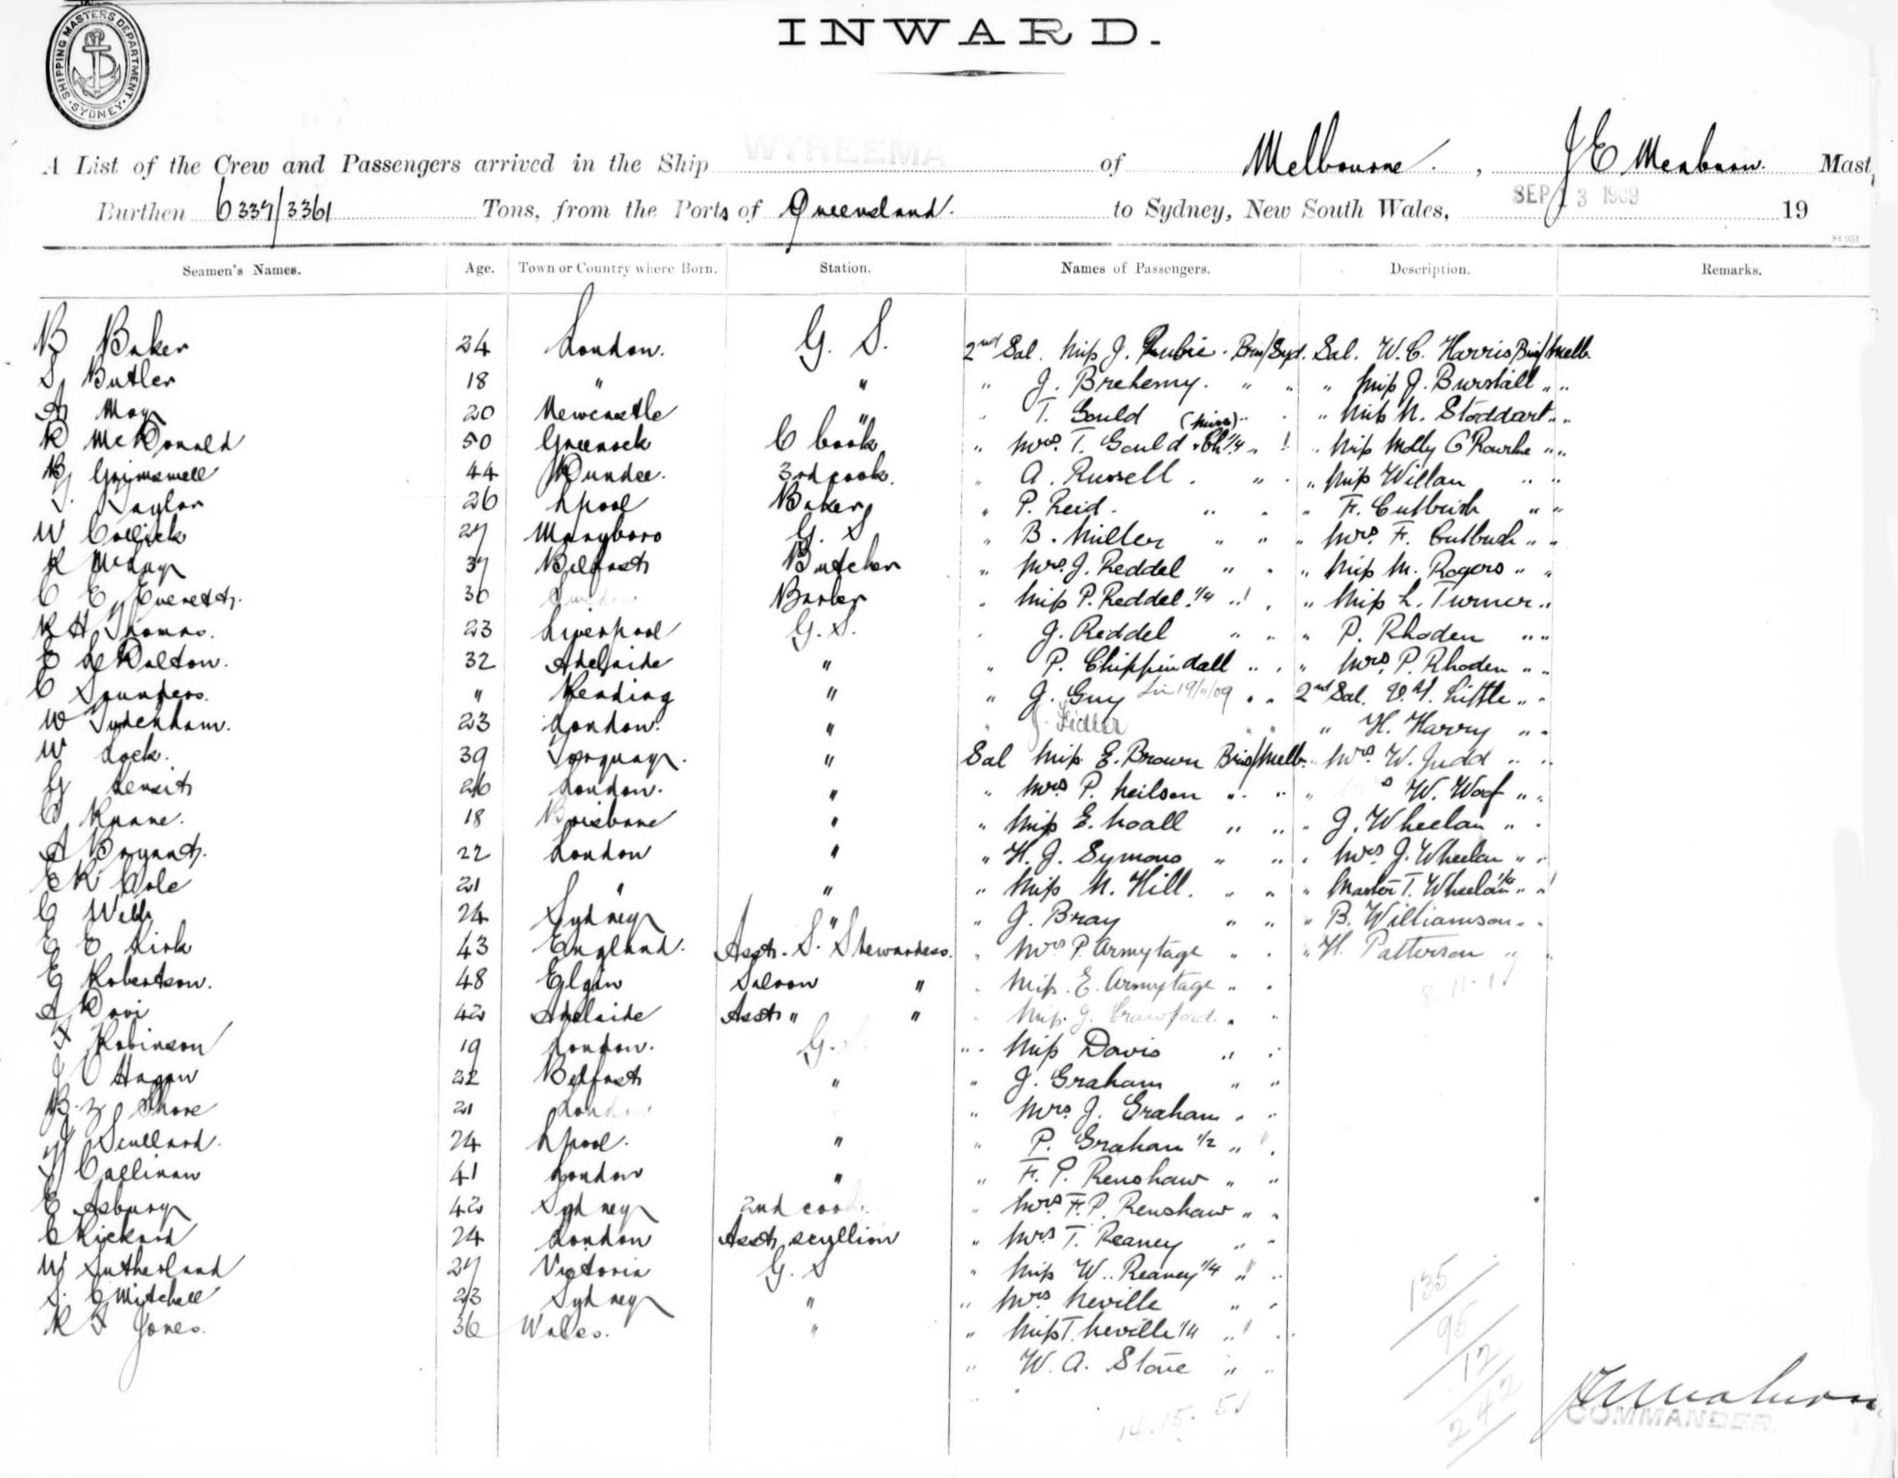 SHIPPING MASTERS DEPARTMENT
SYDNEY
INWARD.
A List of the Crew and Passengers arrived in the Ship WYREEMA of Melbourne, J E Meaburn. Mast
Burthen 6337/3361 Tons, from the Ports of Queensland. to Sydney, New South Wales, SEP 13 1909 19
Seamen's Names. Age. Town or Country where Born. Station. Names of Passengers. Description. Remarks.
B Baker 24 London. G. S. 2nd Sal. Miss J. Rubie. Bris/Syd. Sal. W. C. Harris Bris/Melb.
S Butler 18 " " " J. Breheny. " " " Miss J. Burstall " "
A May 20 Newcastle " " T. Gould " " Miss N. Stoddart " "
R McDonald 50 Greenock C Cook " Mrs. T. Gould & Ch 1/4 " ! " Miss Molly O'Rourke " "
Grimswell 44 Dundee. 3rd cook. " A. Russell. " " " Miss Willan " "
Taylor 26 Lpool Baker " P. Reid. " " " F. Cutbush " "
W Collick 27 Maryboro G. S " B. Miller " " " Mrs. F. Cutbush " "
R McKay 37 Belfast Butcher " Mrs. J. Reddel " " " Miss M. Rogers " "
C E Everett. 30 Barber " Miss P. Reddel. 1/4 " ! " " Miss L. Turner " "
R H Thomas. 23 Liverpool G. S. " J. Reddel " " " P. Rhoden " "
E Dalton. 32 Adelaide " " P. Chippindall " " " Mrs. P. Rhoden " "
C Saunders. " Reading " " J. Guy " " 2nd Sal. Little " "
W Sydenham. 23 London. " " J. Fidler " H. Harry " "
W Lock. 39 Torquay. " Sal Miss E. Brown Bris/Melb. " Mrs W. Judd " "
G 26 London. " " Mrs P. Neilson " " " W. Woof " "
Keane. 18 Brisbane " " Miss E. Noall " " " J. Wheelan " "
A Bryant. 22 London " " H. J. Symons " " " Mrs J. Wheelan " "
E R Cole 21 " " " Miss N. Hill. " " " Master T. Wheelan " "
G Webb 24 Sydney " " J. Bray " " " B. Williamson " "
E E Kirk 43 England. Asst. S. Stewardess. " Mrs P. Armytage " " " H. Patterson " "
E Robertson. 48 Elgin Saloon " " Miss. E. Armytage " "
A Davi 42 Adelaide Asst " " " Miss. J. Crawford. " "
Robinson 19 London. G. S " Miss Davis " "
J C Hagan 22 Belfast " " J. Graham " "
B. Z. Shore 21 London " Mrs. J. Graham " "
Scullard. 24 Lpool. " " P. Graham 1/2 " ! "
Callinan 41 London " " F. P. Renshaw " "
E Asbury 42 Sydney 2nd cook. " Mrs F. P. Renshaw " "
C Rickard 24 London Asst scullion " Mrs T. Reaney " "
W Sutherland 27 Victoria G. S " Miss W. Reaney 1/4 " "
S. C Mitchell 23 Sydney " " Mrs. Neville " "
R F Jones. 36 Wales. " " Miss T. Neville 1/4 " ! "
" W. A. Stone " "
14. 15. 51
135
95
12
242
COMMANDER.